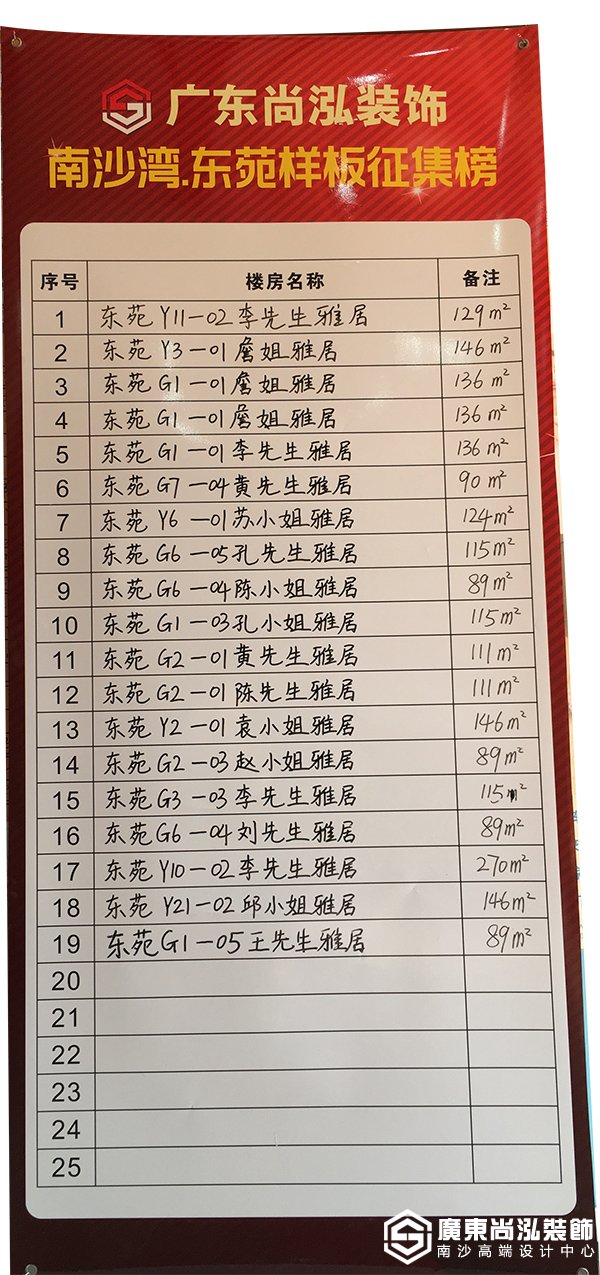 广东尚泓装饰
南沙湾.东苑样板征集榜
序号 楼房名称 备注
1 东苑 Y11-02 李先生雅居 129m²
2 东苑 Y3-01 詹姐雅居 146m²
3 东苑 G1-01 詹姐雅居 136m²
4 东苑 G1-01 詹姐雅居 136m²
5 东苑 G1-01 李先生雅居 136m²
6 东苑 G7-04 黄先生雅居 90m²
7 东苑 Y6-01 苏小姐雅居 124m²
8 东苑 G6-05 孔先生雅居 115m²
9 东苑 G6-04 陈小姐雅居 89m²
10 东苑 G1-03 孔小姐雅居 115m²
11 东苑 G2-01 黄先生雅居 111m²
12 东苑 G2-01 陈先生雅居 111m²
13 东苑 Y2-01 袁小姐雅居 146m²
14 东苑 G2-03 赵小姐雅居 89m²
15 东苑 G3-03 李先生雅居 115m²
16 东苑 G6-04 刘先生雅居 89m²
17 东苑 Y10-02 李先生雅居 270m²
18 东苑 Y21-02 邱小姐雅居 146m²
19 东苑 G1-05 王先生雅居 89m²
20
21
22
23
24
25
廣東尚泓裝飾
南沙高端设计中心